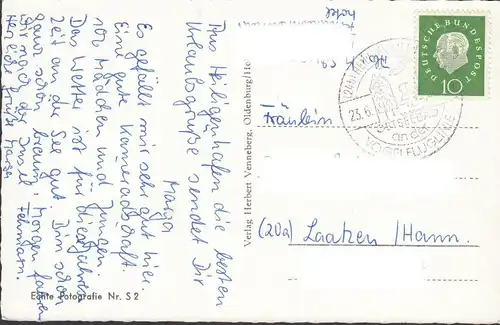 Aus Heiligenhafen die besten
Urlaubsgrüße sendet Dir
Marga
Es gefällt mir sehr gut hier.
Eine gute Kameradschaft.
Mädchen und Jungen.
Das Wetter ist für die Jahres
Zeit an der See gut. Bin schon
ganz schön braun. Morgen fahren
wir nach der Insel Fehmarn.
Herzliche Grüße Marga
Echte Fotografie Nr. S 2
Verlag Herbert Venneberg, Oldenburg/Ho
DEUTSCHE BUNDESPOST
10
23.6.
an der
VOGELFLUGLINIE
Fräulein
(20a) Laatzen /Hann.